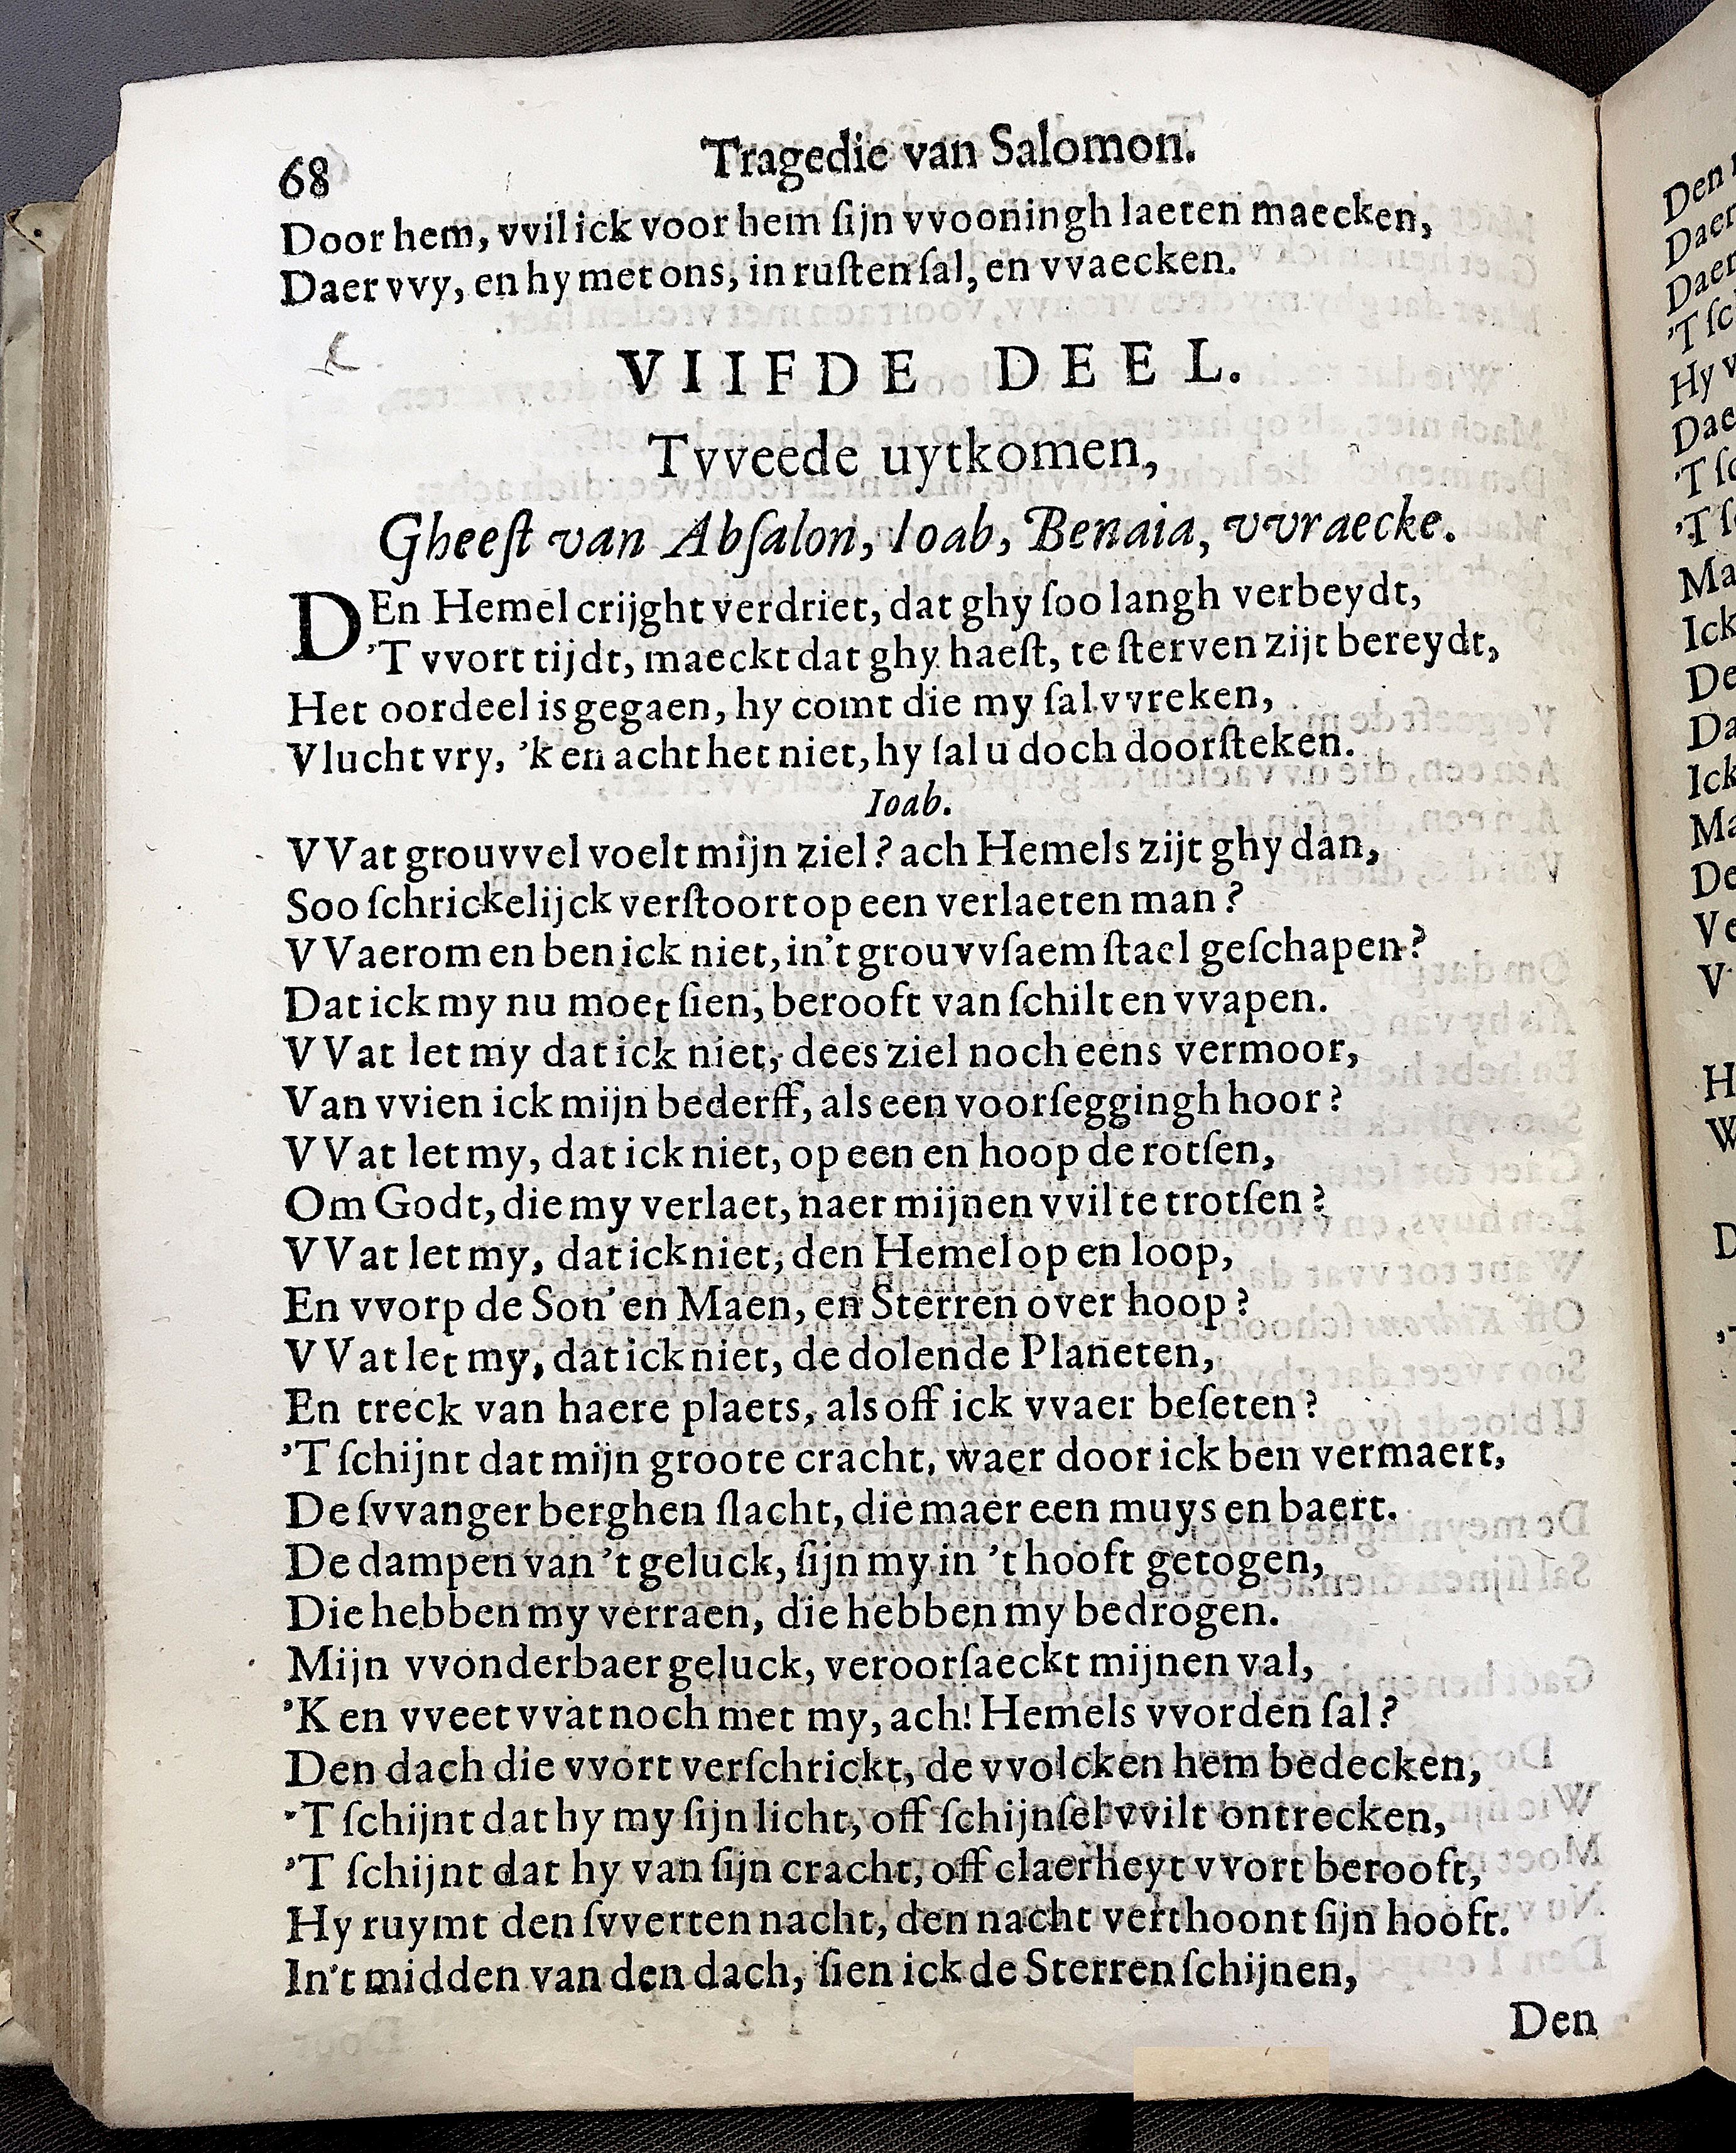 68
Tragedie van Salomon.
Door hem, vvil ick voor hem ſijn vvooningh laeten maecken,
Daer vvy, en hy met ons, in ruſten ſal, en vvaecken.
VIIFDE DEEL.
Tvveede uytkomen,
Gheeſt van Abſalon, Ioab, Benaia, vvraecke.
DEn Hemel crijght verdriet, dat ghy ſoo langh verbeydt,
'T vvort tijdt, maeckt dat ghy haeſt, te ſterven zijt bereydt,
Het oordeel is gegaen, hy comt die my ſal vvreken,
Vlucht vry, 'k en acht het niet, hy ſal u doch doorſteken.
Ioab.
VVat grouvvel voelt mijn ziel? ach Hemels zijt ghy dan,
Soo ſchrickelijck verſtoort op een verlaeten man?
VVaerom en ben ick niet, in't grouvvſaem ſtael geſchapen?
Dat ick my nu moet ſien, berooft van ſchilt en vvapen.
VVat let my dat ick niet, dees ziel noch eens vermoor,
Van vvien ick mijn bederff, als een voorſeggingh hoor?
VVat let my, dat ick niet, op een en hoop de rotſen,
Om Godt, die my verlaet, naer mijnen vvil te trotſen?
VVat let my, dat ick niet, den Hemel op en loop,
En vvorp de Son' en Maen, en Sterren over hoop?
VVat let my, dat ick niet, de dolende Planeten,
En treck van haere plaets, als off ick vvaer beſeten?
'T ſchijnt dat mijn groote cracht, waer door ick ben vermaert,
De ſvvanger berghen ſlacht, die maer een muys en baert.
De dampen van 't geluck, ſijn my in 't hooft getogen,
Die hebben my verraen, die hebben my bedrogen.
Mijn vvonderbaer geluck, veroorſaeckt mijnen val,
'K en vveet vvat noch met my, ach! Hemels vvorden ſal?
Den dach die vvort verſchrickt, de vvolcken hem bedecken,
'T ſchijnt dat hy my ſijn licht, off ſchijnſel vvilt ontrecken,
'T ſchijnt dat hy van ſijn cracht, off claerheyt vvort berooft,
Hy ruymt den ſvverten nacht, den nacht verthoont ſijn hooft.
In't midden van den dach, ſien ick de Sterren ſchijnen,
Den